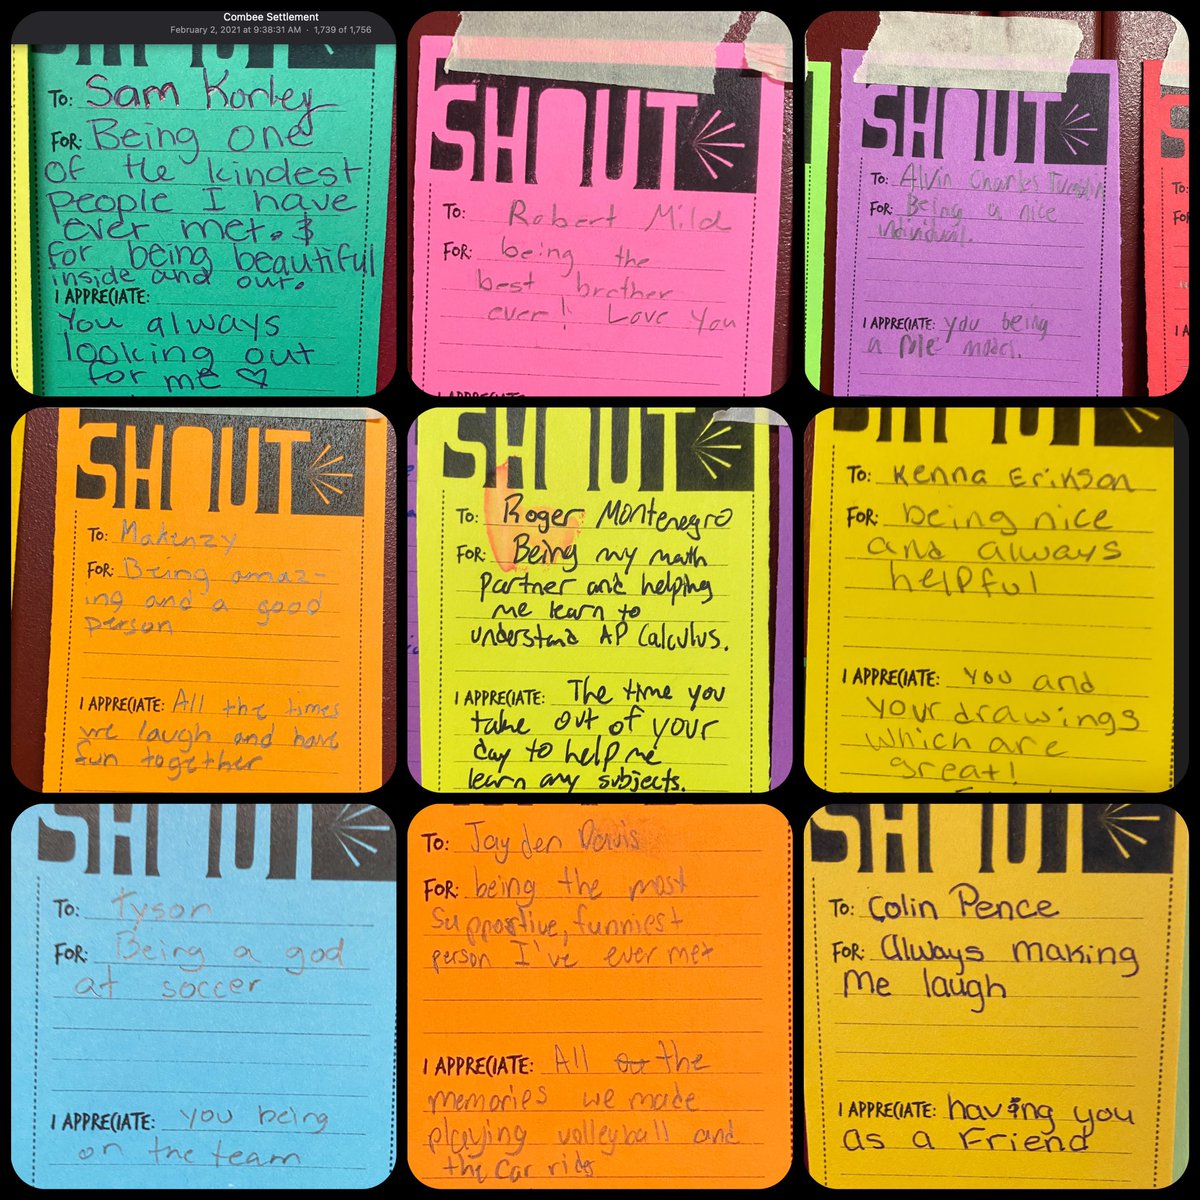 Combee Settlement
February 2, 2021 at 9:38:31 AM · 1,739 of 1,756
To: Sam Korley
FOR: Being one
of the kindest
People I have
ever met. &
for being beautiful
inside and out.
I APPRECIATE:
You always
looking out
for me ♡
SHOUT
To: Robert Mild
FOR: being the
best brother
ever! Love You
I APPRECIATE:
SHOUT
To: Alvin Charles
FOR: Being a nice
individual.
I APPRECIATE: you being
a role model.
SHOUT
To: Makenzy
FOR: Being amaz-
ing and a good
person
I APPRECIATE: All the times
we laugh and have
fun together
SHOUT
To: Roger Montenegro
FOR: Being my math
partner and helping
me learn to
understand AP Calculus.
I APPRECIATE: The time you
take out of your
day to help me
learn any subjects.
To: Kenna Erikson
FOR: being nice
and always
helpful
I APPRECIATE: You and
your drawings
which are
great!
SHOUT
To: Tyson
FOR: Being a god
at soccer
I APPRECIATE: you being
on the team
To: Jayden Davis
FOR: being the most
Supportive, funniest
person I've ever met
I APPRECIATE: All the
memories we made
playing volleyball and
the car rides
SHOUT
To: Colin Pence
FOR: always making
Me laugh
I APPRECIATE: having you
as a Friend